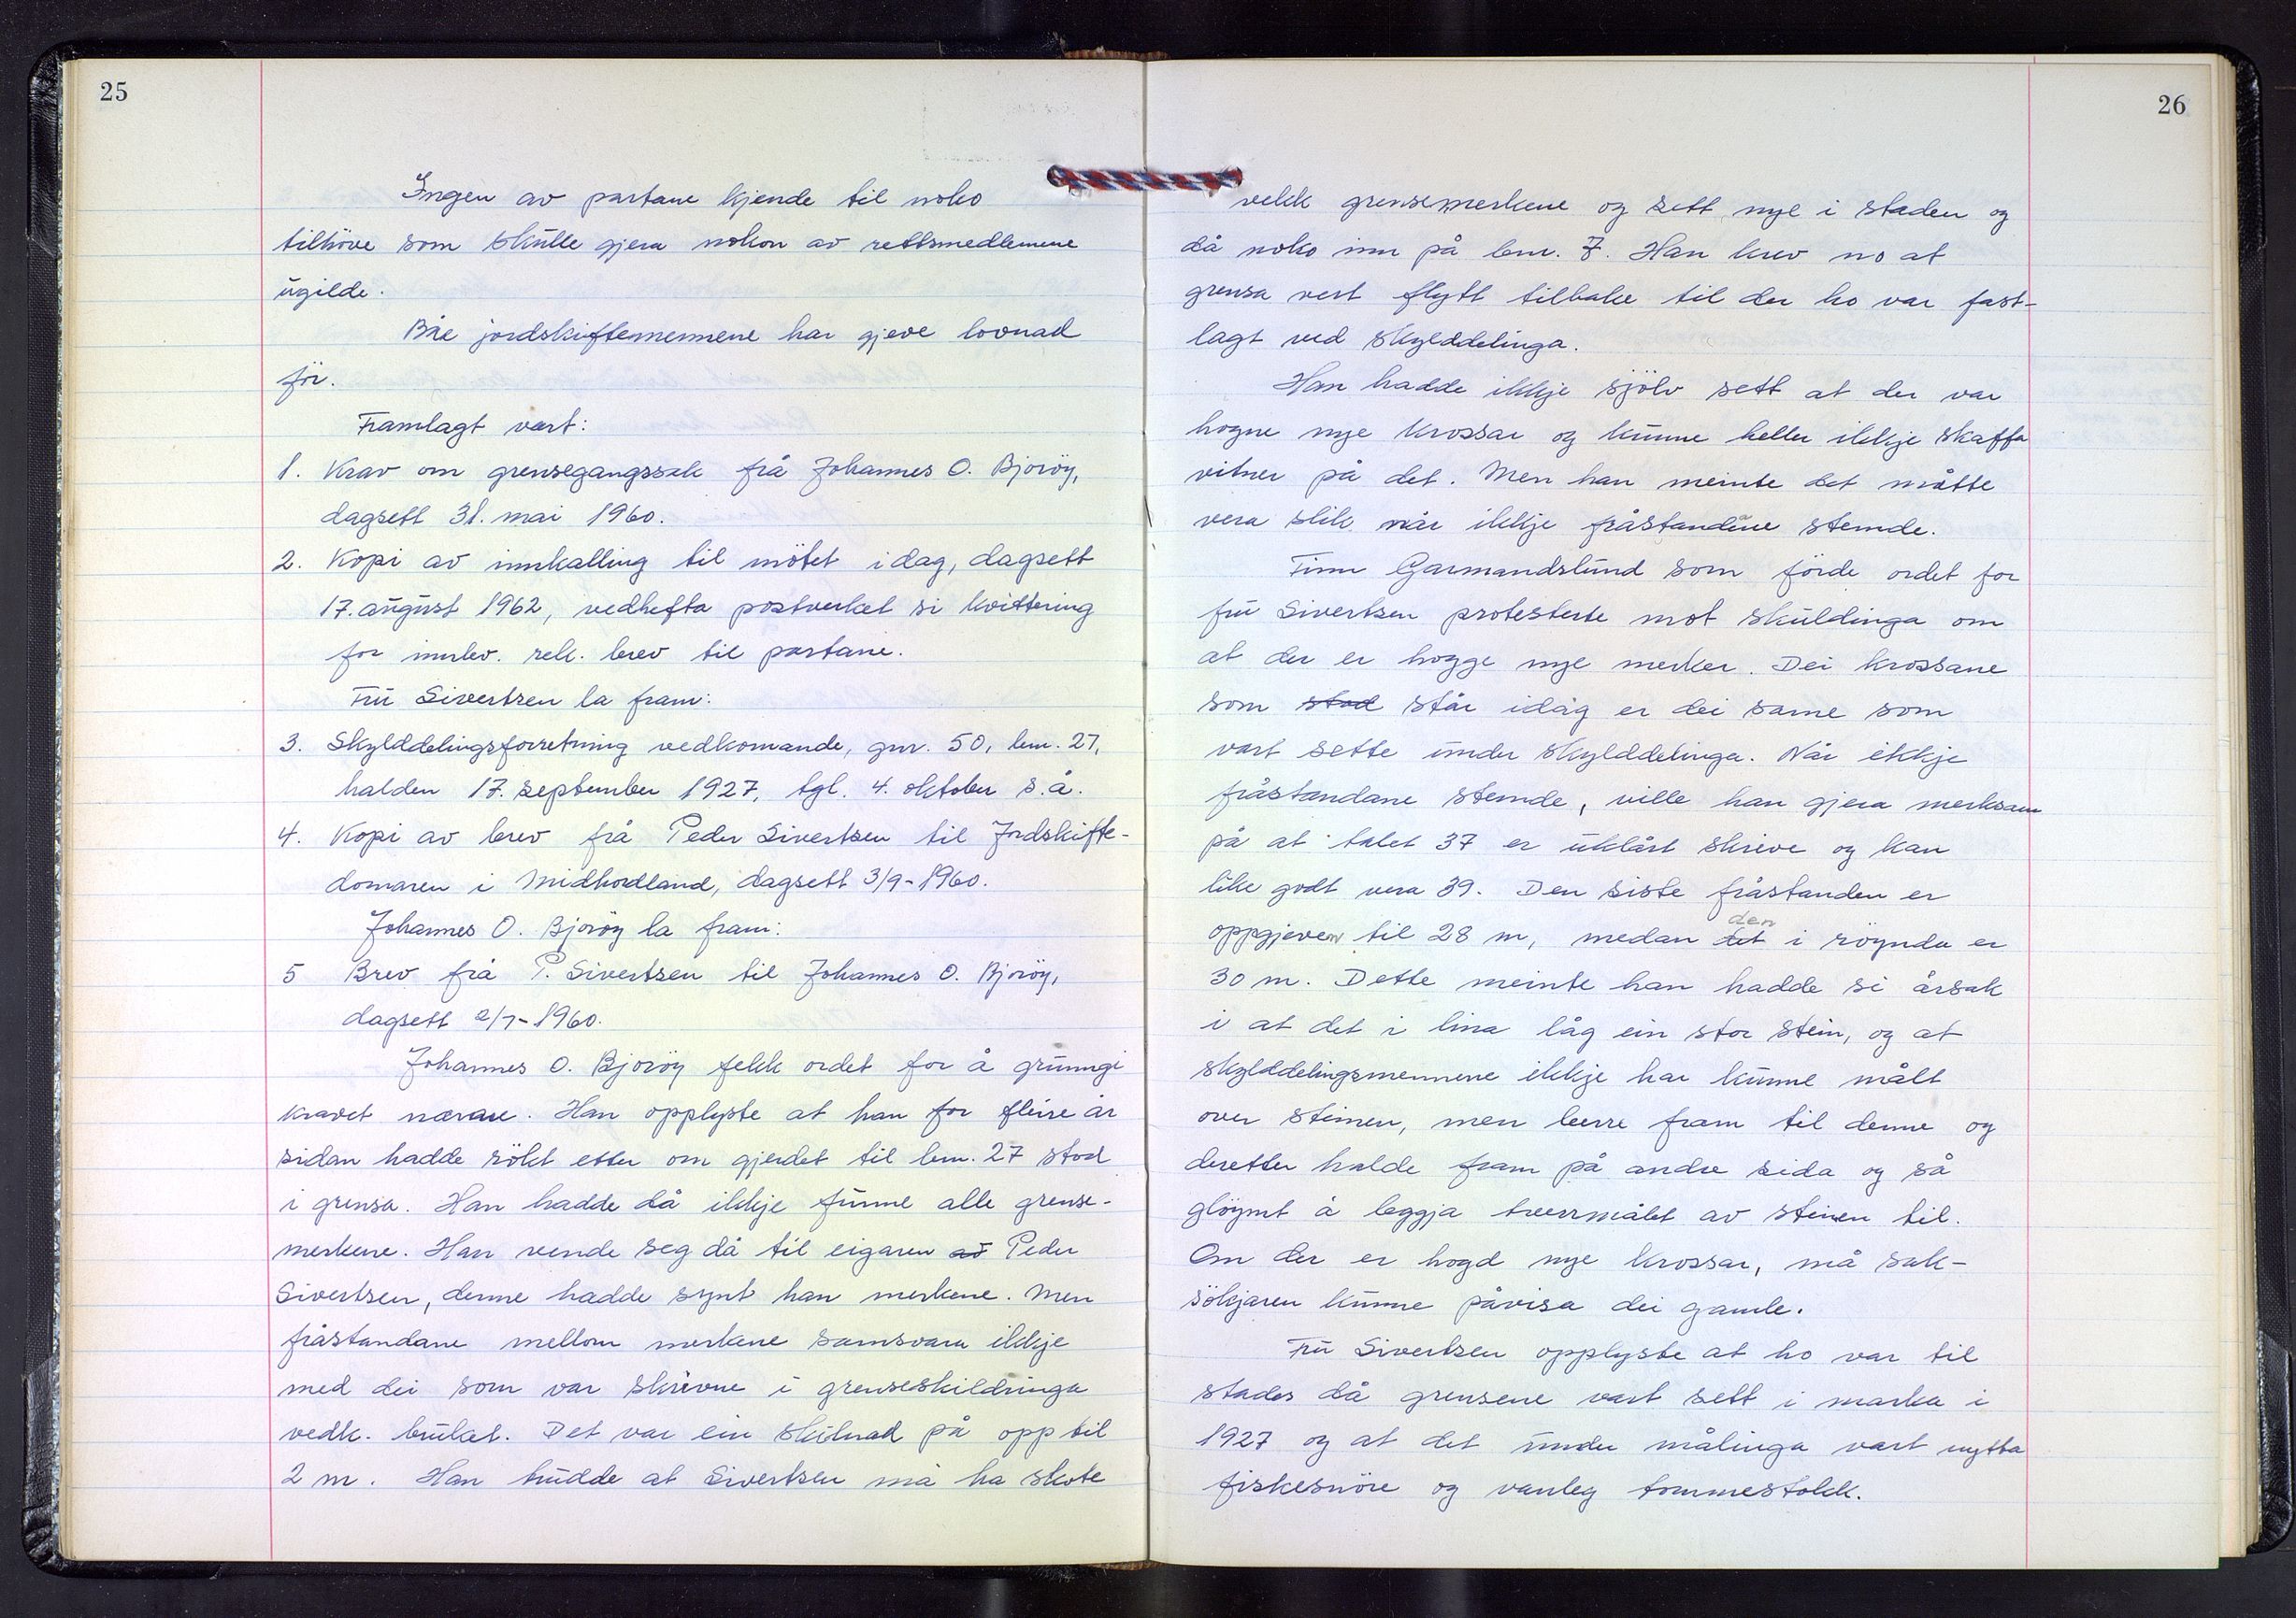 25
Ingen av partane kjende til noko
tilhöve som skulle gjera nokon av rettsmedlemene
ugilde.
Båe jordskiftemennene har gjeve lovnad
för.
Framlagt vart:
1. Krav om grensegangssak frå Johannes O. Bjoröy,
dagsett 31. mai 1960.
2. Kopi av innkalling til mötet i dag, dagsett
17. august 1962, vedhefta postverket si kvittering
for innlev. rek. brev til partane.
Fru Sivertsen la fram:
3. Skylddelingsforretning vedkomande, gnr. 50, bnr. 27,
halden 17. september 1927, tgl. 4. oktober s.å.
4. Kopi av brev frå Peder Sivertsen til Jordskifte-
domaren i Midhordland, dagsett 3/9-1960.
Johannes O. Bjoröy la fram:
5 Brev frå P. Sivertsen til Johannes O. Bjoröy,
dagsett 2/7-1960.
Johannes O. Bjoröy fekk ordet for å grunngi
kravet nærare. Han opplyste at han for fleire år
sidan hadde sökt etter om gjerdet til bnr. 27 stod
i grensa. Han hadde då ikkje funne alle grense-
merkene. Han vende seg då til eigaren av Peder
Sivertsen, denne hadde synt han merkene. Men
fråstandane mellom merkene samsvara ikkje
med dei som var skrivne i grenseskildringa
vedk. bruket. Det var ein skilnad på opp til
2 m. Han trudde at Sivertsen må ha skote
26
vekk grensemerkene og sett nye i staden og
då noko inn på bnr. 7. Han krev no at
grensa vert flytt tilbake til der ho var fast-
lagt ved skylddelinga.
Han hadde ikkje sjölv sett at der var
hogne nye krossar og kunne heller ikkje skaffa
vitner på det. Men han meinte det måtte
vera slik når ikkje fråstandane stemde.
Finn Garmandslund som förde ordet for
fru Sivertsen protesterte mot skuldinga om
at der er hogge nye merker. Dei krossane
som stod står idag er dei same som
vart sette under skylddelinga. Når ikkje
fråstandane stemde, ville han gjera merksam
på at talet 37 er uklårt skrive og kan
like godt vera 39. Den siste fråstanden er
oppgjeven til 28 m, medan det den i röynda er
30 m. Dette meinte han hadde si årsak
i at det i lina låg ein stor stein, og at
skylddelingsmennene ikkje har kunne målt
over steinen, men berre fram til denne og
deretter halde fram på andre sida og så
glöymt å leggja tverrmålet av steinen til.
Om der er hogd nye krossar, må sak-
sökjaren kunne påvisa dei gamle.
Fru Sivertsen opplyste at ho var til
stades då grensene vart sett i marka i
1927 og at det under målinga vart nytta
fiskesnöre og vanleg tommestokk.